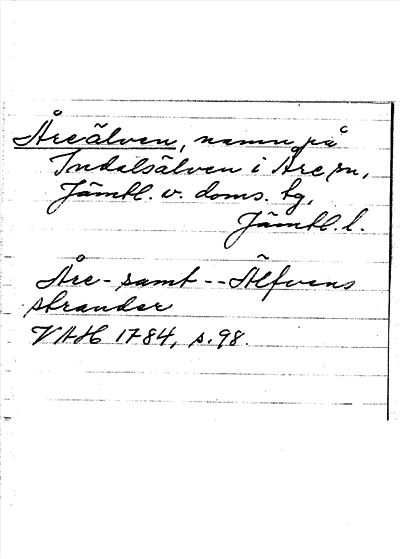 Åreälven, namn på
Indalsälven i Åre sn,
Jämtl. v. doms. tg,
Jämtl. l.
Åre- samt -- Älfvens
stränder
VAH 1784, s. 98.